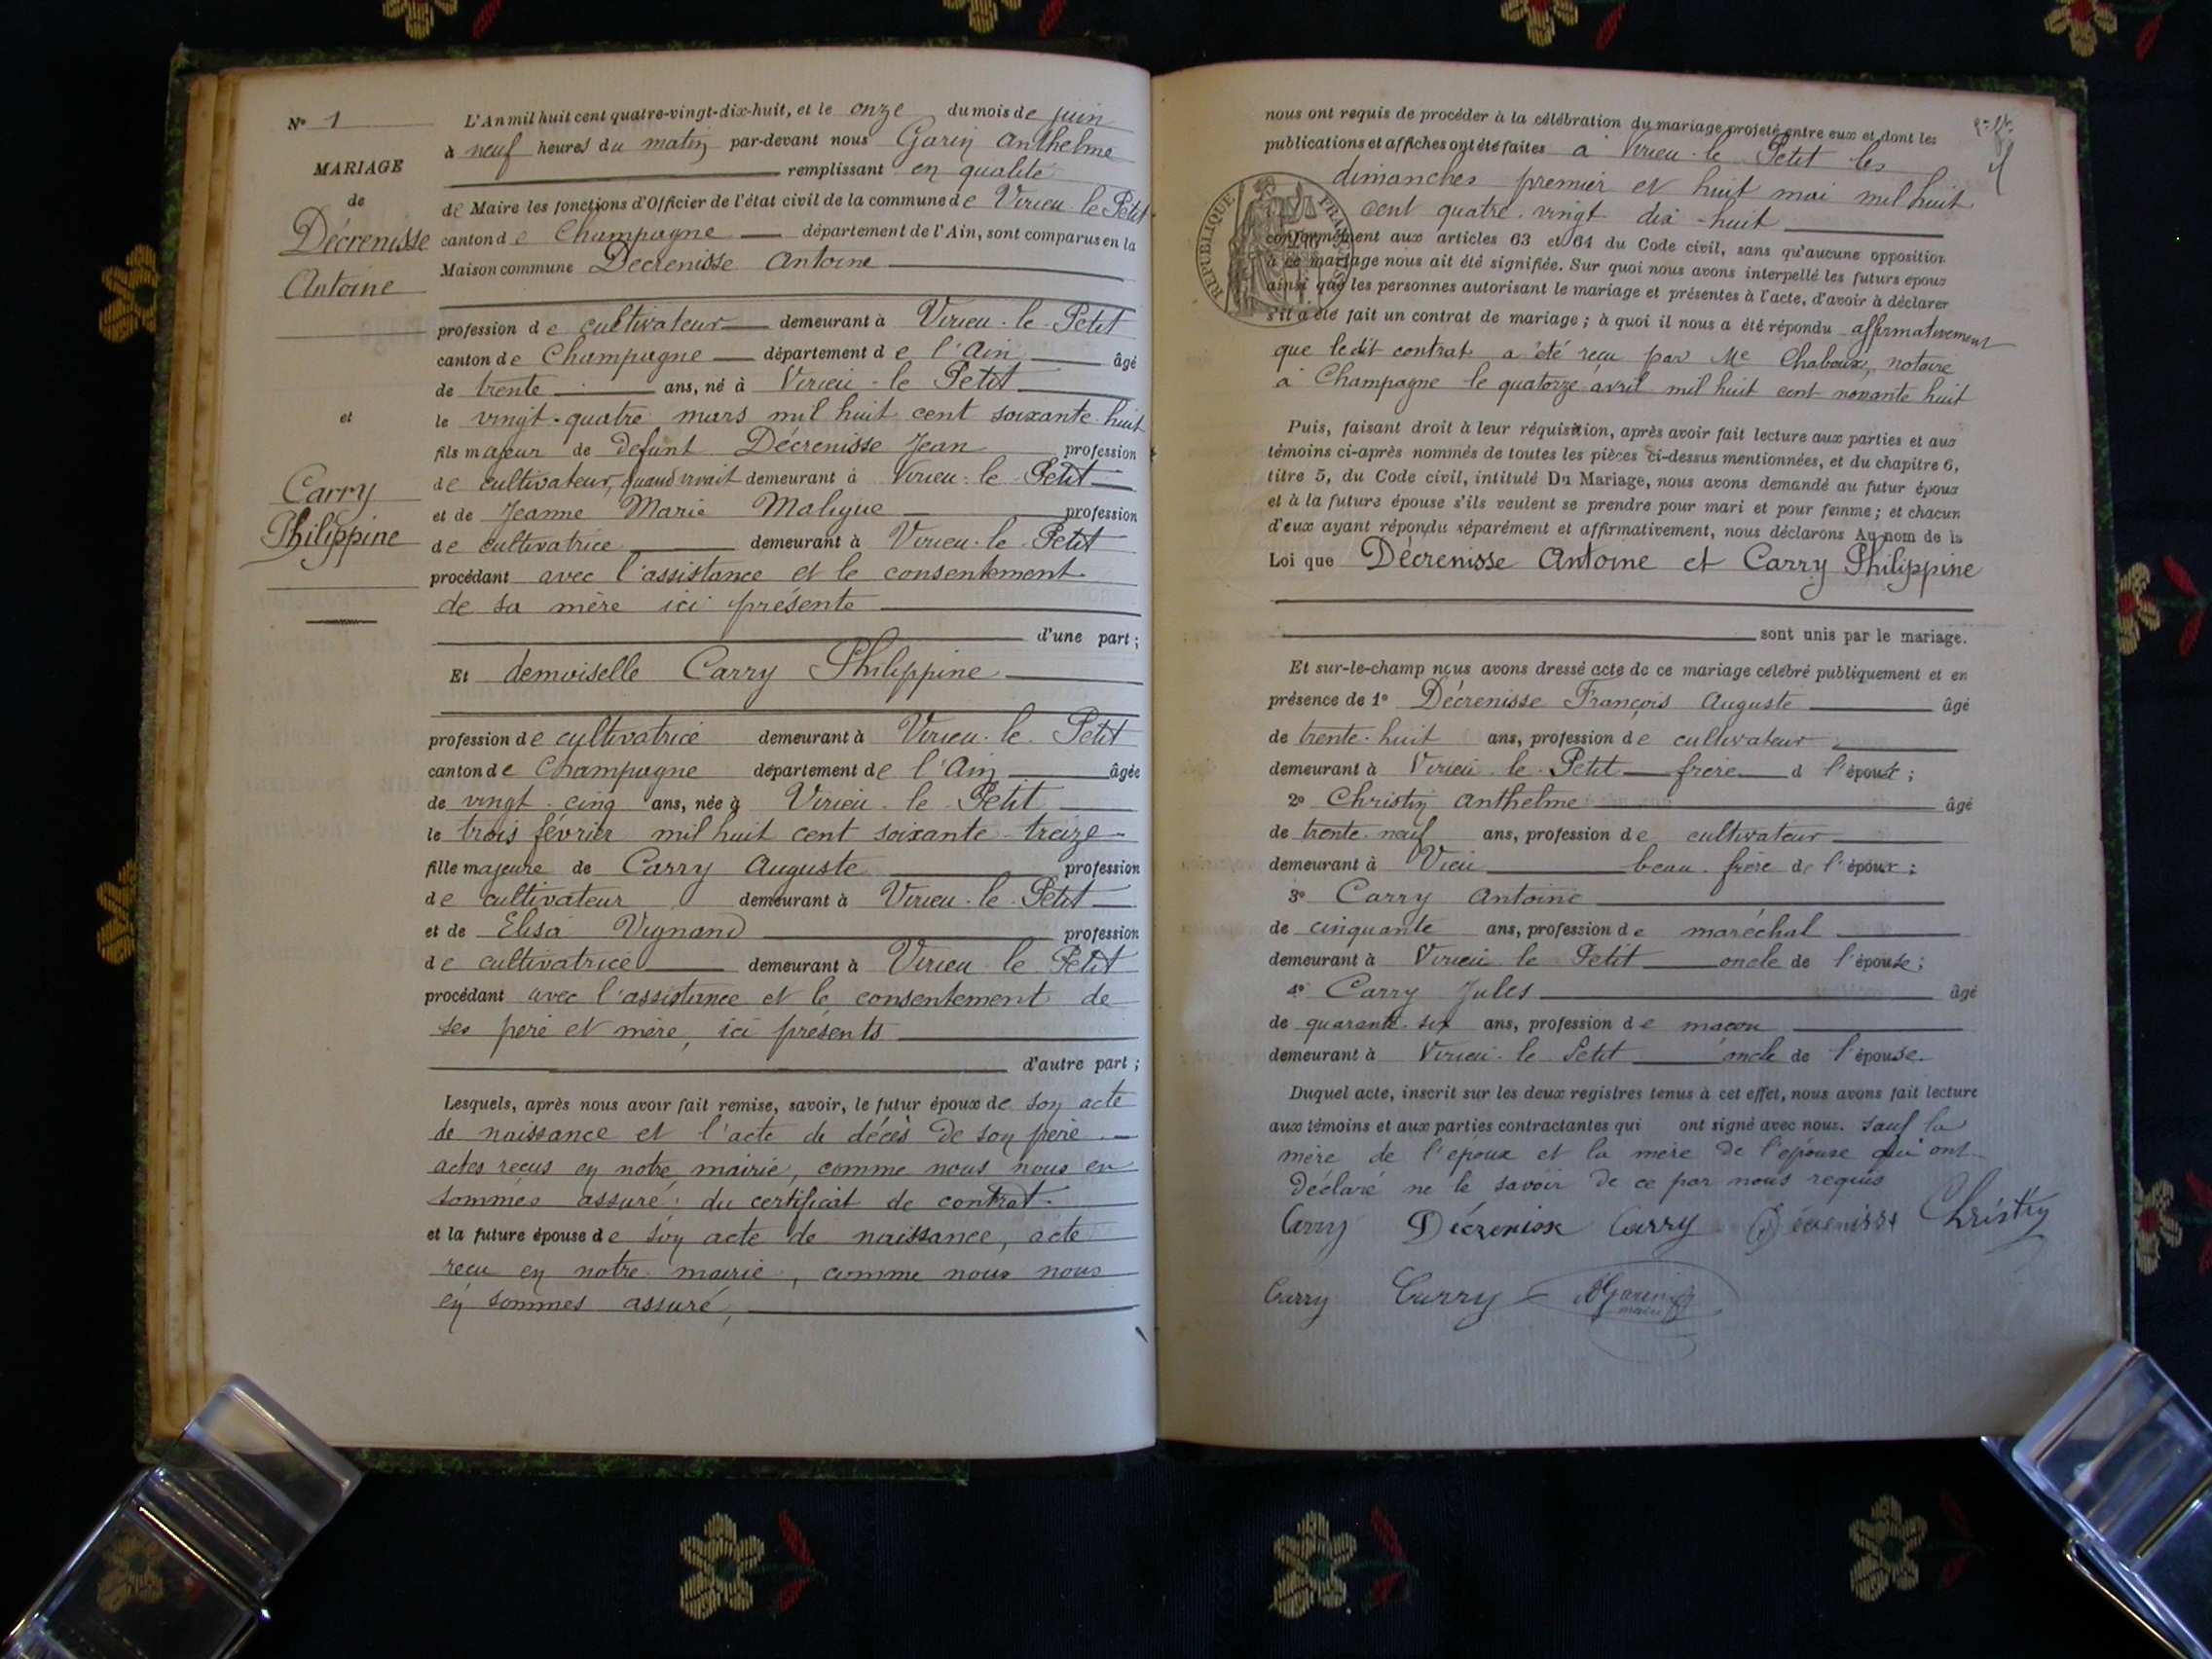 N° 1
MARIAGE
de
Décrenisse
Antoine
et
Carry
Philippine
L'An mil huit cent quatre-vingt-dix-huit, et le onze du mois de juin
à neuf heures du matin par-devant nous Garin Anthelme
remplissant en qualité
de Maire les fonctions d'Officier de l'état civil de la commune de Virieu-le-Petit
canton de Champagne département de l'Ain, sont comparus en la
Maison commune Décrenisse Antoine
profession de cultivateur demeurant à Virieu-le-Petit
canton de Champagne département de l'Ain âgé
de trente ans, né à Virieu-le Petit
le vingt-quatre mars mil huit cent soixante-huit
fils majeur de défunt Décrenisse Jean profession
de cultivateur, quand vivait demeurant à Virieu-le-Petit
et de Jeanne Marie Maligue profession
de cultivatrice demeurant à Virieu-le-Petit
procédant avec l'assistance et le consentement
de sa mère ici présente
d'une part;
Et demoiselle Carry Philippine
profession de cultivatrice demeurant à Virieu-le-Petit
canton de Champagne département de l'Ain âgée
de vingt-cinq ans, née à Virieu-le-Petit
le trois février mil huit cent soixante-treize
fille majeure de Carry Auguste profession
de cultivateur demeurant à Virieu-le-Petit
et de Elisa Vignand profession
de cultivatrice demeurant à Virieu le Petit
procédant avec l'assistance et le consentement de
ses père et mère, ici présents
d'autre part;
Lesquels, après nous avoir fait remise, savoir, le futur époux de son acte
de naissance et l'acte de décès de son père
actes reçus en notre mairie, comme nous nous en
sommes assuré; du certificat de contrat.
et la future épouse de son acte de naissance, acte
reçu en notre mairie, comme nous nous
en sommes assuré,
nous ont requis de procéder à la célébration du mariage projeté entre eux et dont les
publications et affiches ont été faites à Virieu-le-Petit les
dimanches premier et huit mai mil huit
cent quatre-vingt dix-huit
RÉPUBLIQUE FRANÇAISE
conformément aux articles 63 et 64 du Code civil, sans qu'aucune opposition
à ce mariage nous ait été signifiée. Sur quoi nous avons interpellé les futurs époux
ainsi que les personnes autorisant le mariage et présentes à l'acte, d'avoir à déclarer
s'il a été fait un contrat de mariage; à quoi il nous a été répondu affirmativement
que ledit contrat a été reçu par Me Chaboux, notaire
à Champagne le quatorze avril mil huit cent novante huit
Puis, faisant droit à leur réquisition, après avoir fait lecture aux parties et aux
témoins ci-après nommés de toutes les pièces ci-dessus mentionnées, et du chapitre 6,
titre 5, du Code civil, intitulé Du Mariage, nous avons demandé au futur époux
et à la future épouse s'ils veulent se prendre pour mari et pour femme; et chacun
d'eux ayant répondu séparément et affirmativement, nous déclarons Au nom de la
Loi que Décrenisse Antoine et Carry Philippine
sont unis par le mariage.
Et sur-le-champ nous avons dressé acte de ce mariage célébré publiquement et en
présence de 1° Décrenisse François Auguste âgé
de trente-huit ans, profession de cultivateur
demeurant à Virieu-le-Petit frère d l'époux;
2° Christin Anthelme âgé
de trente-neuf ans, profession de cultivateur
demeurant à Vieu beau-frère de l'époux;
3° Carry Antoine
de cinquante ans, profession de maréchal
demeurant à Virieu le Petit oncle de l'épouse;
4° Carry Jules âgé
de quarante-six ans, profession de maçon
demeurant à Virieu-le Petit oncle de l'épouse.
Duquel acte, inscrit sur les deux registres tenus à cet effet, nous avons fait lecture
aux témoins et aux parties contractantes qui ont signé avec nous. sauf la
mère de l'époux et la mère de l'épouse qui ont
déclaré ne le savoir de ce par nous requis
Carry Décrenisse Carry Décrenisse Christin
Carry Carry AGarin
maire